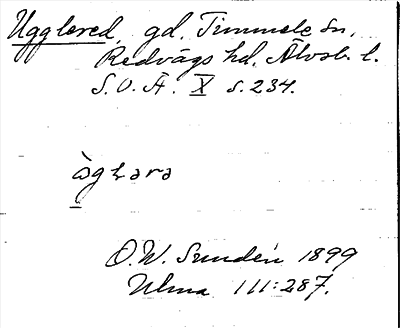 Ugglered, gd. Timmele sn,
Redvägs hd. Älvsb. l.
S.O.Ä. X s. 234.
O.W. Sundén 1899
Ulma 111:287.